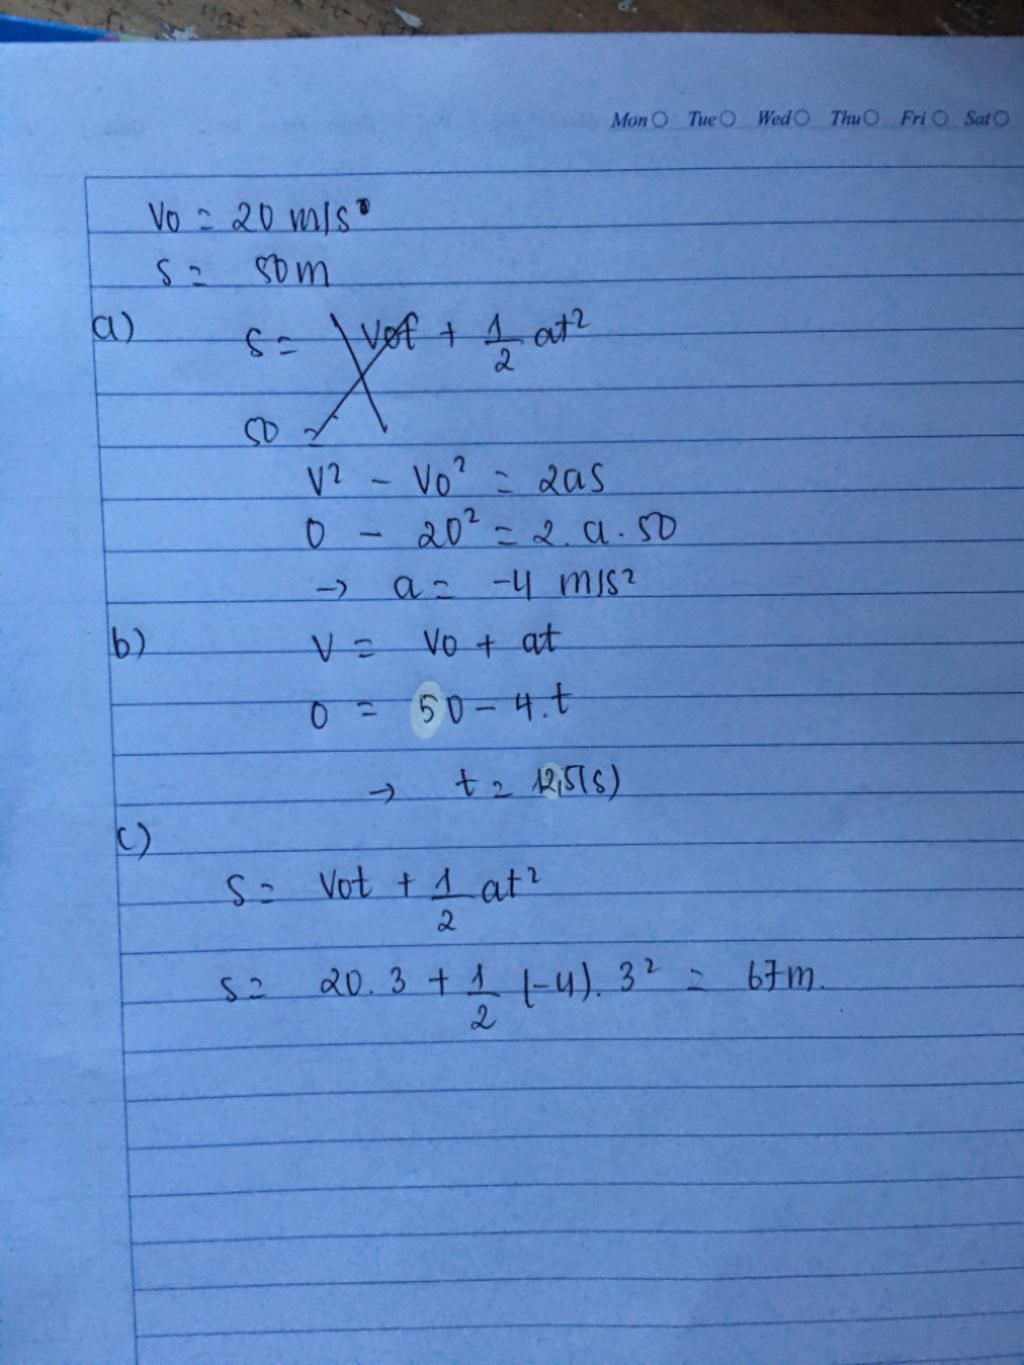 Mon Tue Wed Thu Fri Sat
Vo = 20 m/s
S = 50m
a) S = Vot + 1/2 at²
50 =
V² - Vo² = 2as
0 - 20² = 2.a.50
→ a = -4 m/s²
b) V = Vo + at
0 = 50 - 4.t
→ t = 12,5(s)
c)
S = Vot + 1/2 at²
S = 20.3 + 1/2 (-4).3² = 67m.